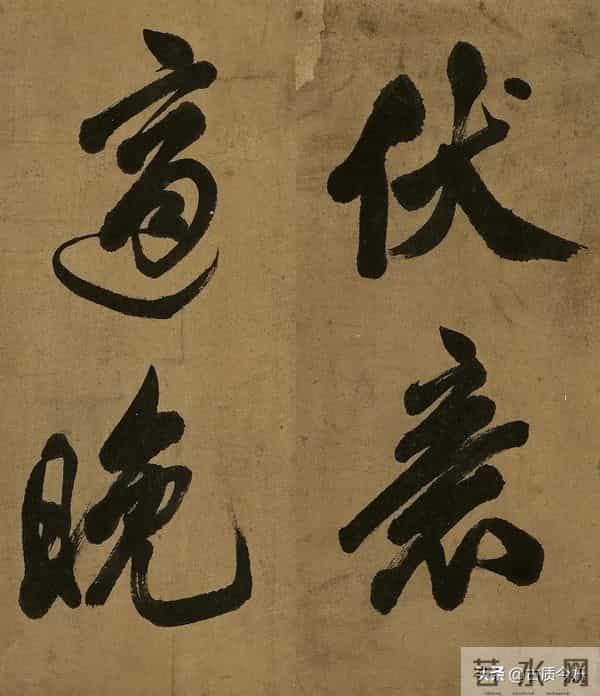 伏衰
適晚
若水网
头条 @古质今妍